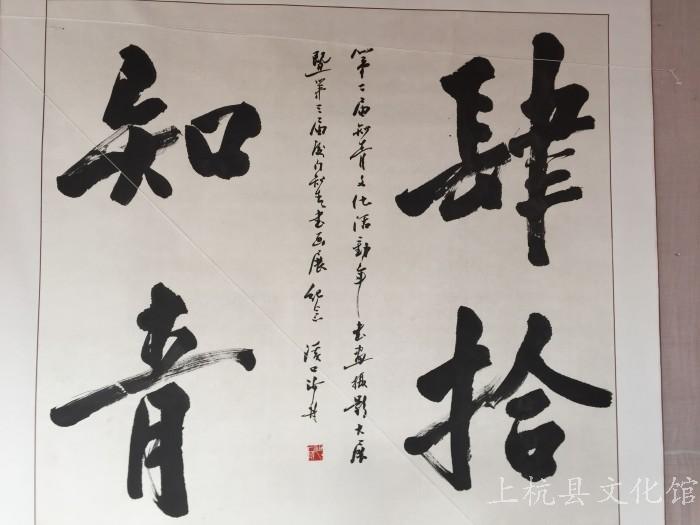 肆拾
第二届知青文化活动年书画摄影大展
暨第三届厦门知青书画展纪念
知青
上杭县文化馆